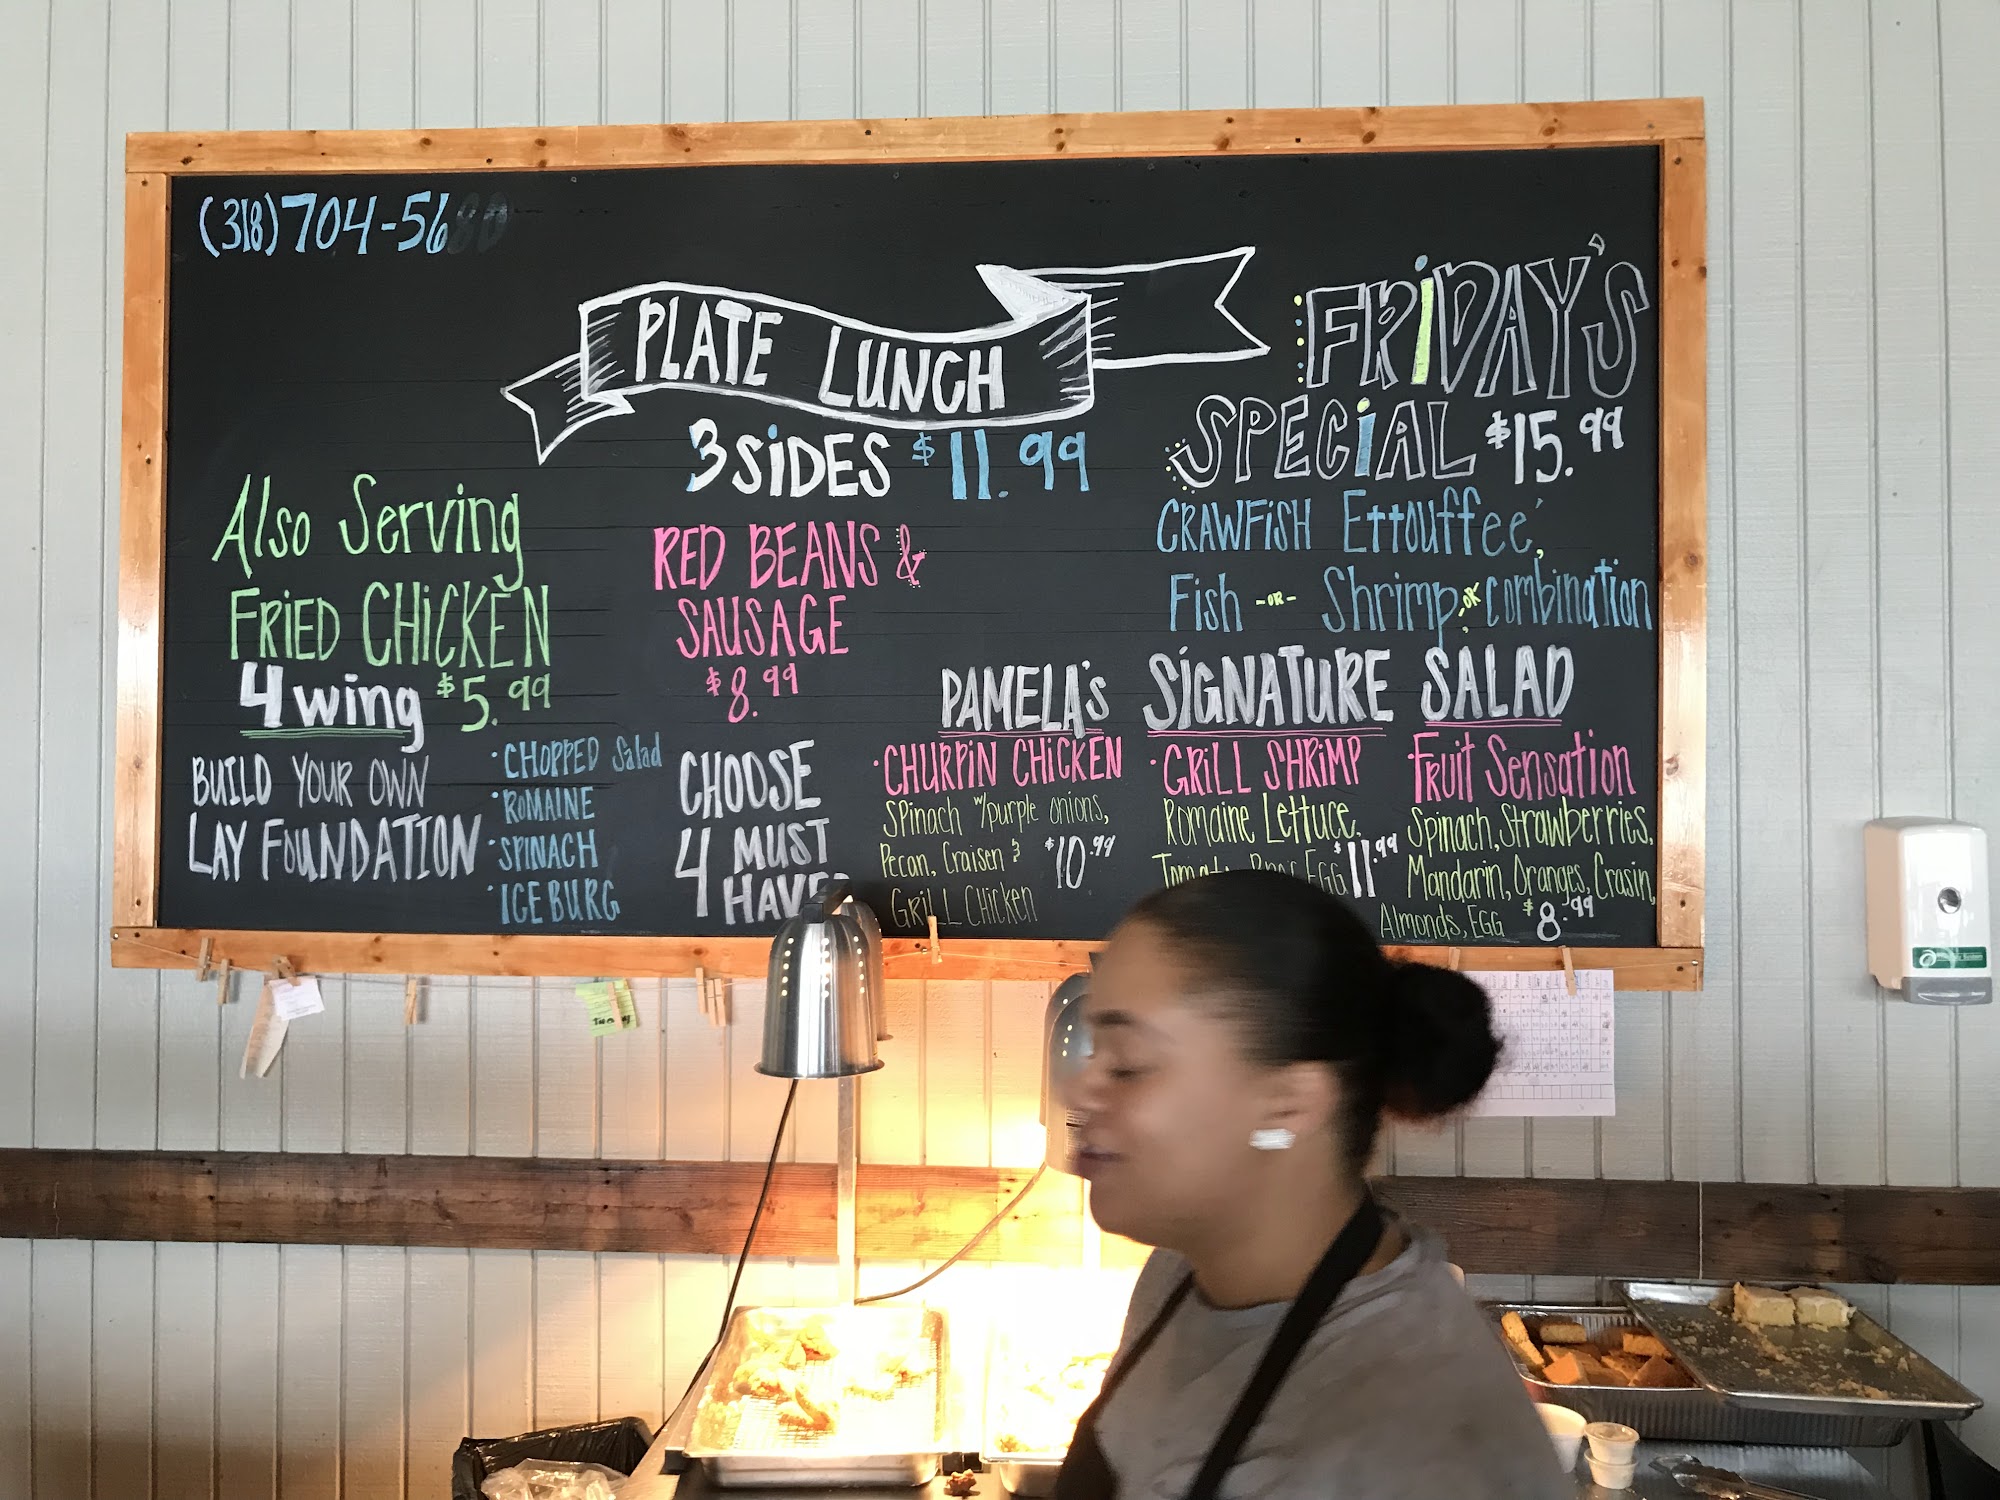 (318)704-5680
PLATE LUNCH
3 SiDES $11.99
FRiDAY'S
SPECiAL $15.99
CRAWFiSH Ettouffee,
Fish -OR- Shrimp -OR- combination
Also Serving
FRiED CHiCKEN
4 wing $5.99
RED BEANS &
SAUSAGE
$8.99
BUILD YOUR OWN
LAY FOUNDATION
• CHOPPED Salad
• ROMAINE
• SPINACH
• ICEBURG
CHOOSE
4 MUST
HAVE
PAMELA'S SiGNATURE SALAD
• CHURPiN CHiCKEN
Spinach w/purple onions,
Pecan, Craisen &
Grill Chicken
$10.99
• GRiLL SHRiMP
Romaine Lettuce,
Egg
$11.99
• Fruit Sensation
Spinach, Strawberries,
Mandarin, Oranges, Crasin,
Almonds, Egg $8.99